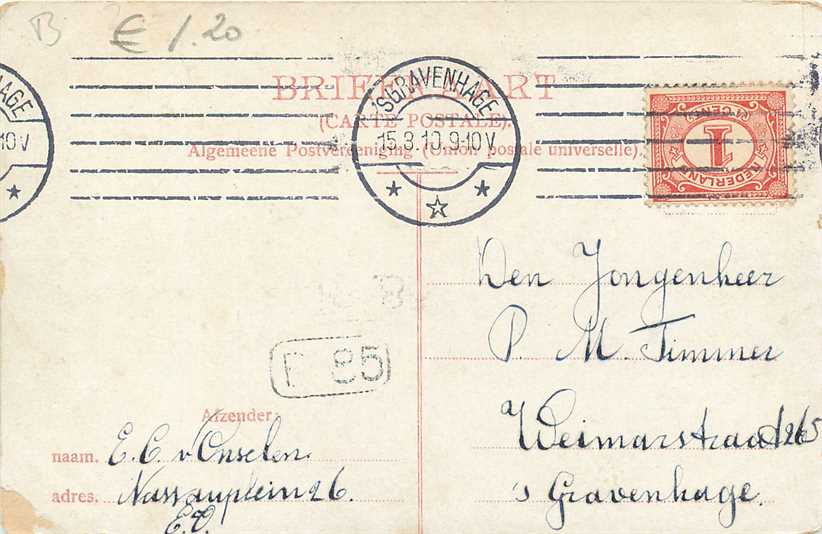 B € 1.20
BRIEFKAART
(CARTE POSTALE).
Algemeene Postvereeniging (Union postale universelle).
'SGRAVENHAGE
15.3.10.9-10V
HAGE
10V
1 CENT
1
NEDERLAND
Den Jongenheer
P. M. Timmer
Weimarstraat 126
's Gravenhage.
85
Afzender:
naam. E. C. v Onselen
adres. Nassauplein 26.
E.V.